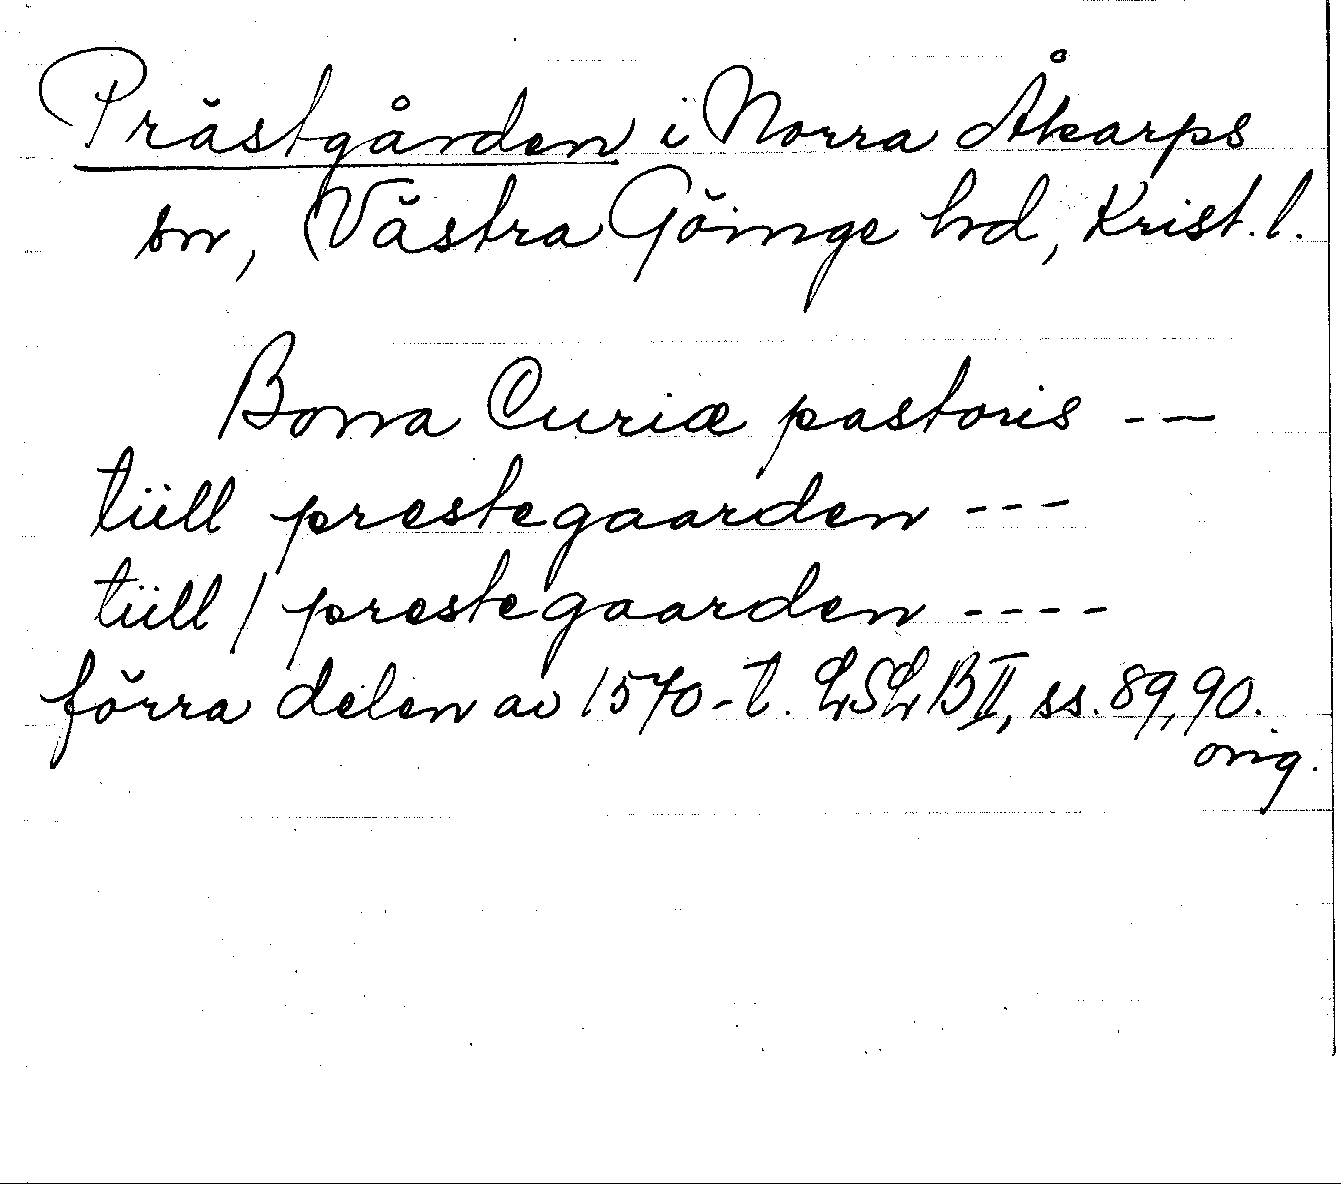 Prästgården i Norra Åkarps
sn, Västra Göinge hd, Krist. l.
Bona Curiæ pastoris -—
tiill prestegaarden ---
tiill / prestegaarden ----
förra delen av 1570-t. LSLB II, ss. 89, 90.
orig.